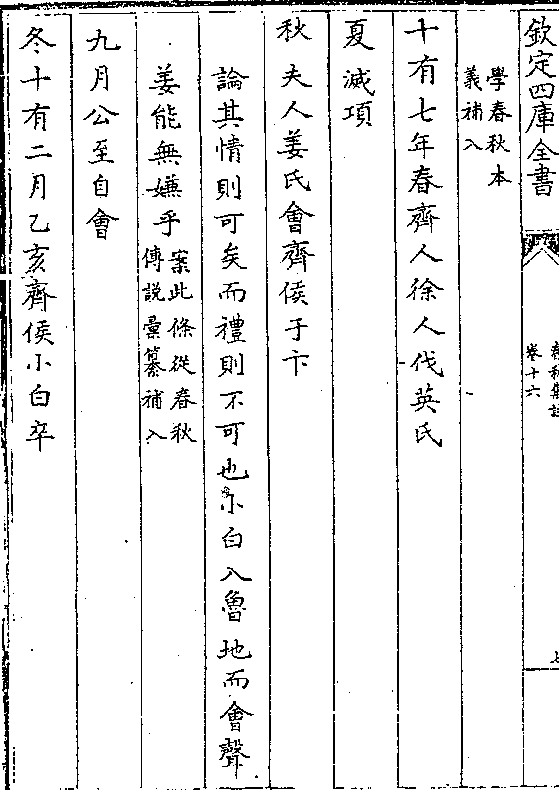 欽定四庫全書
春秋集註
卷十六
學春秋本
義補入
十有七年春齊人徐人伐英氏
夏滅項
秋夫人姜氏會齊侯于卞
論其情則可矣而禮則不可也小白入魯地而會聲
姜能無嫌乎
案此條從春秋
傳說彙纂補入
九月公至自會
冬十有二月乙亥齊侯小白卒